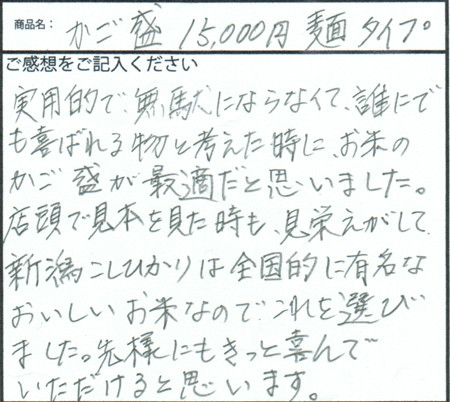 商品名: かご盛 15,000円 麺タイプ
ご感想をご記入ください
実用的で、無駄にならなくて、誰にで
も喜ばれる物と考えた時に、お米の
かご盛が最適だと思いました。
店頭で見本を見た時も、見栄えがして、
新潟こしひかりは全国的に有名な
おいしいお米なので、これを選び
ました。先様にもきっと喜んで
いただけると思います。